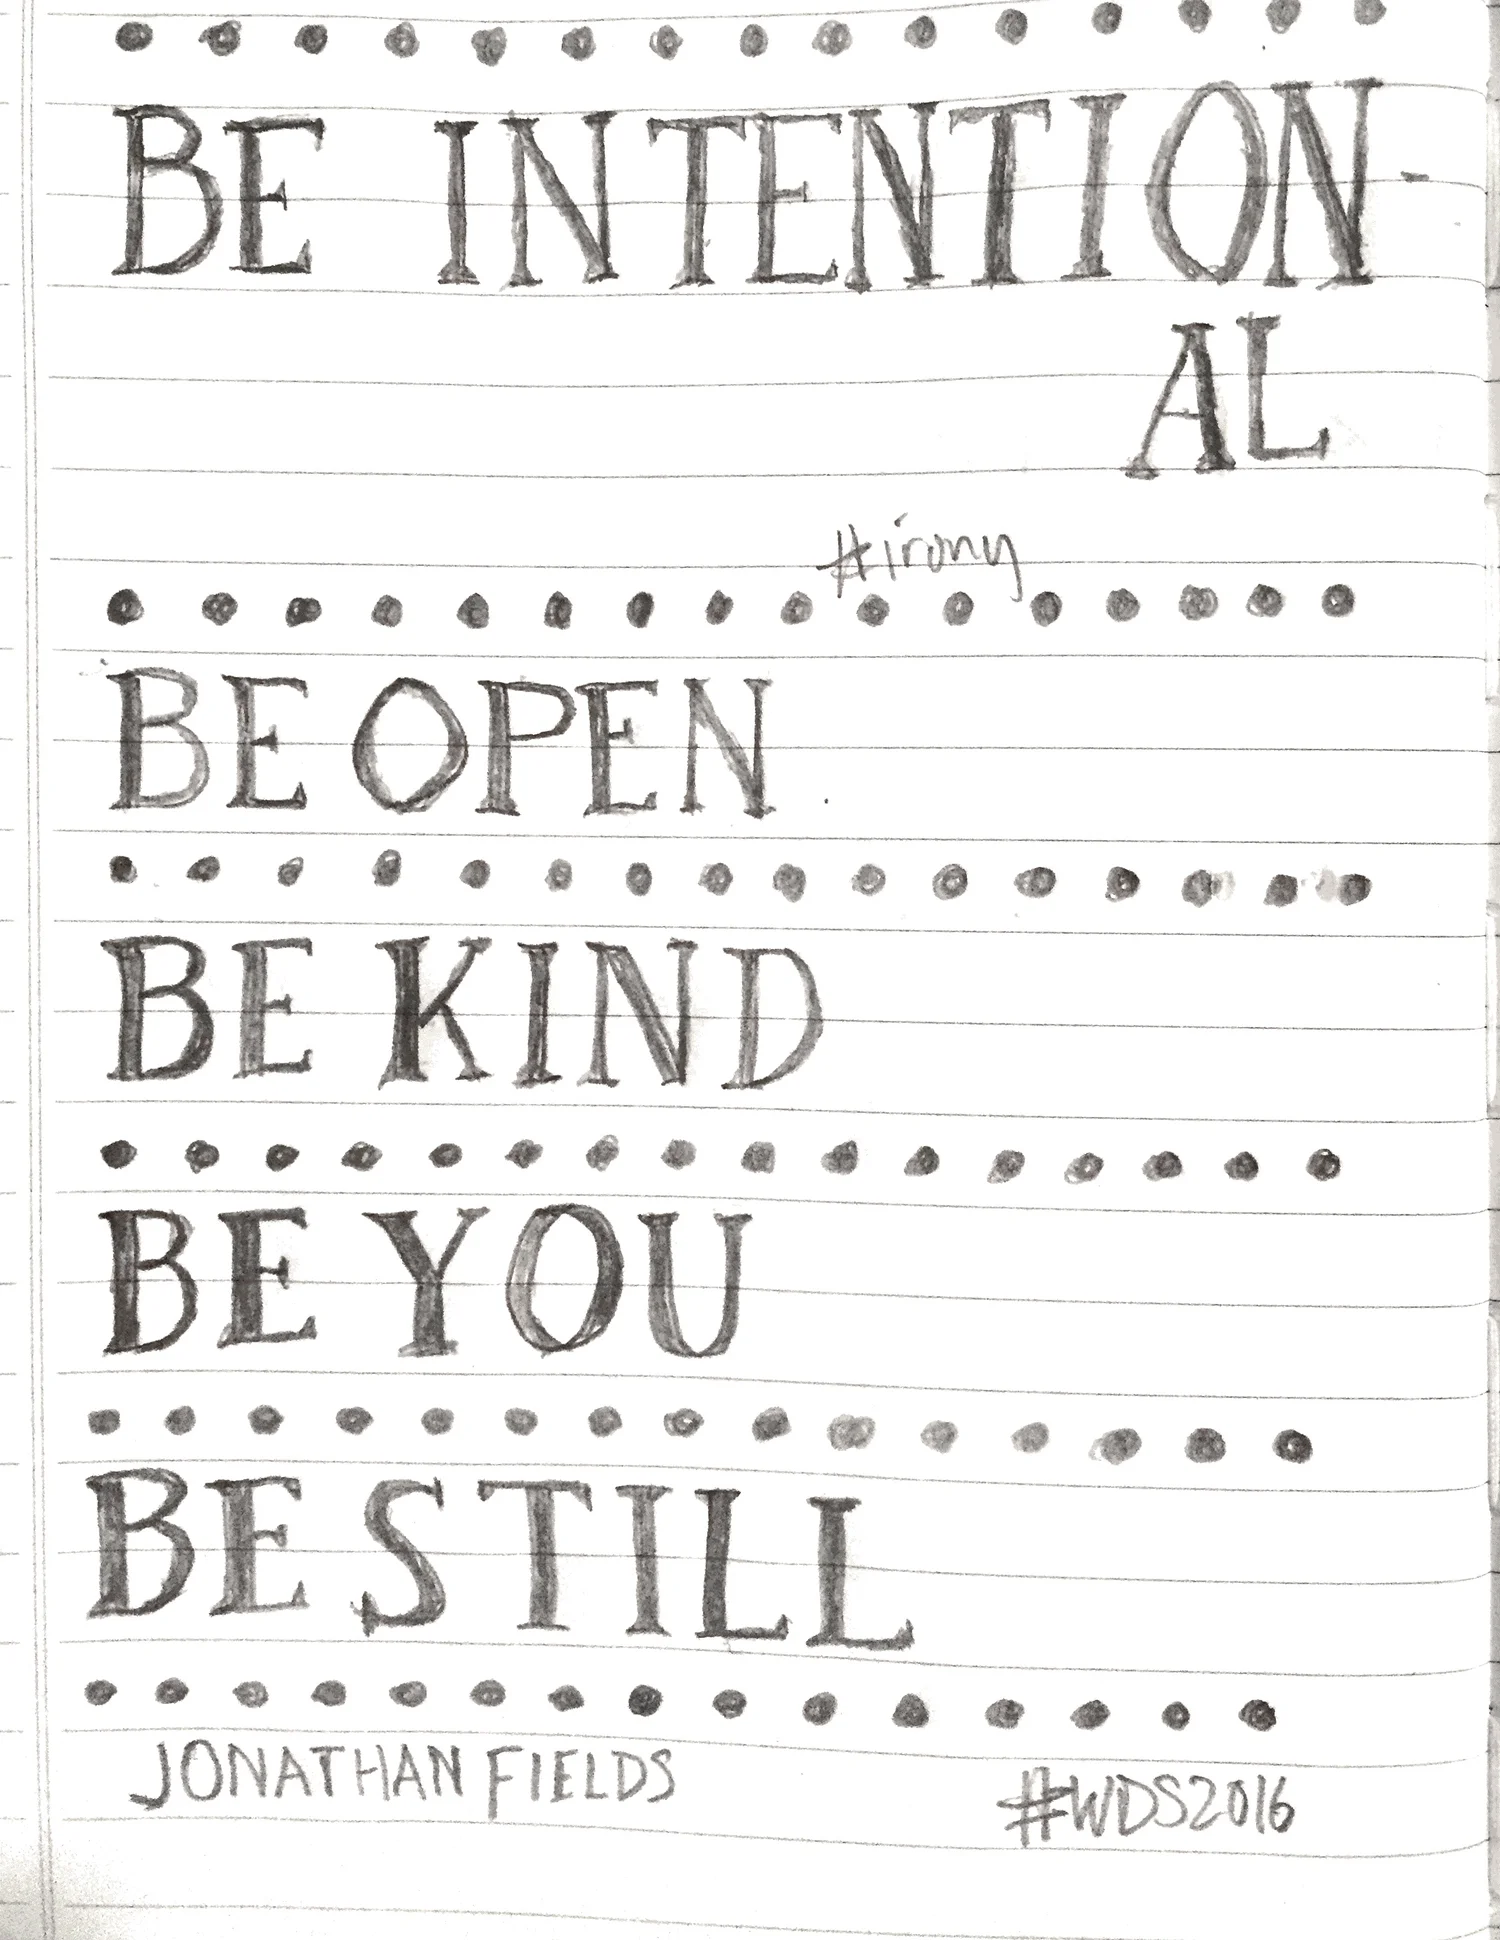 BE INTENTION-
AL
#irony
BE OPEN
BE KIND
BE YOU
BE STILL
JONATHAN FIELDS #WDS2016